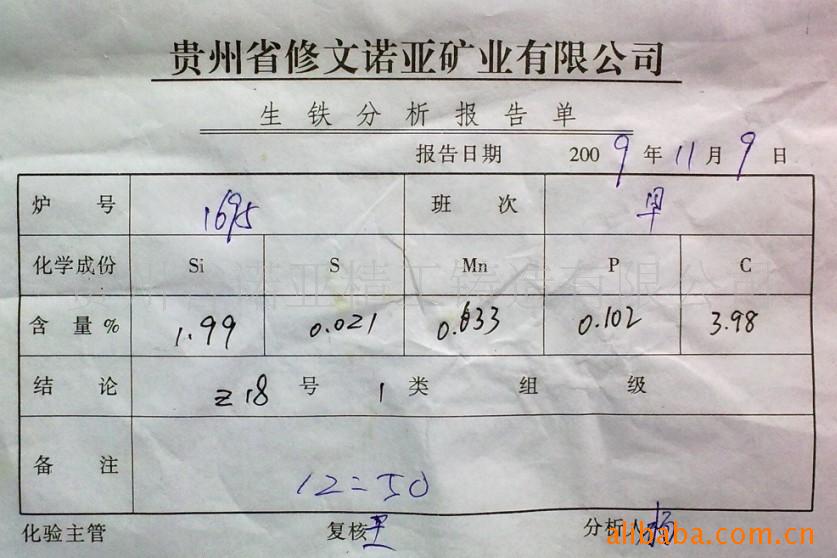 贵州省修文诺亚矿业有限公司
生铁分析报告单
报告日期 2009年11月9日
炉号 1695 班次 早
化学成份 Si S Mn P C
贵州省诺亚精工铸造有限公司
含量% 1.99 0.021 0.033 0.102 3.98
结论 Z18号 1类 组 级
备注 12=50
化验主管 复核 分析人 杨
alibaba.com.cn